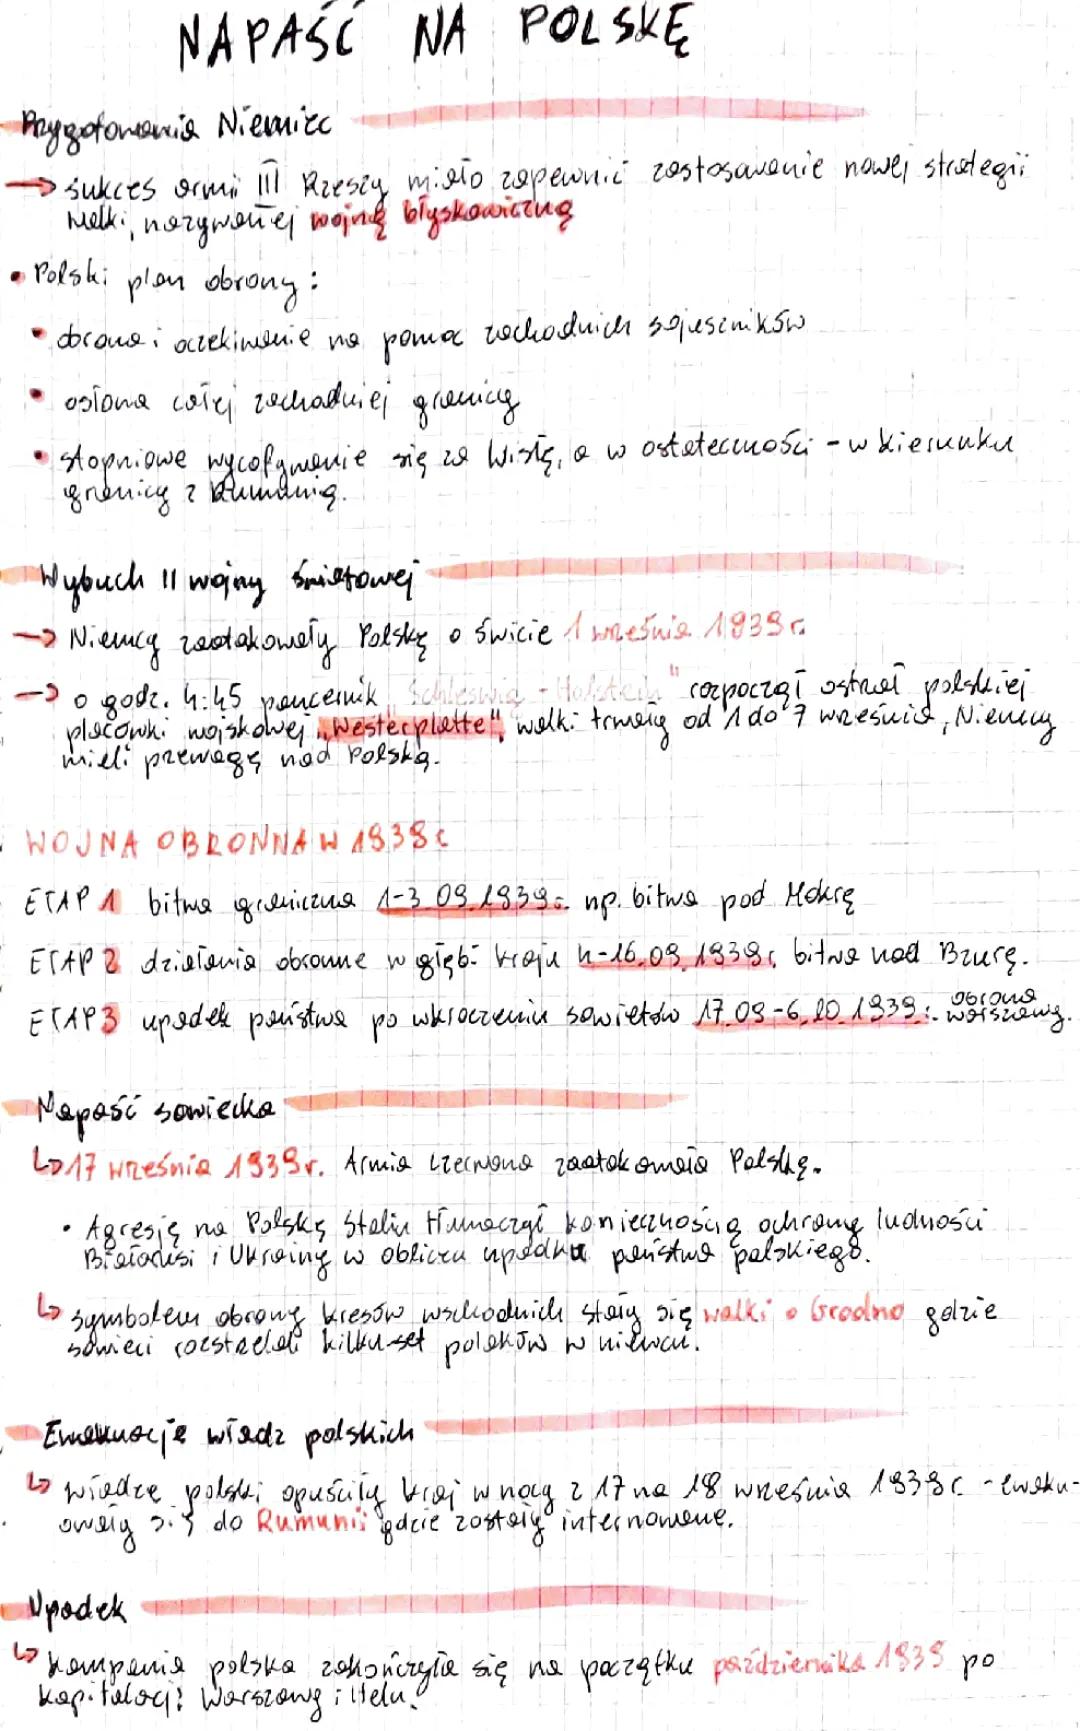 NAPAŚĆ NA POLSKĘ
Przygotowania Niemiec
→ sukces armii III Rzeszy miało zapewnić zastosowanie nowej strategii
walki, nazywanej wojną błyskawiczną
• Polski plan obrony:
• obrona i oczekiwanie na pomoc zachodnich sojuszników
• osłona całej zachodniej granicy
• stopniowe wycofywanie się za Wisłę, a w ostateczności - w kierunku
granicy z Rumunią.
Wybuch II wojny światowej
→ Niemcy zaatakowały Polskę o świcie 1 września 1939 r.
→ o godz. 4:45 pancernik "Schleswig - Holstein" rozpoczął ostrzał polskiej
placówki wojskowej "Westerplatte", walki trwały od 1 do 7 września, Niemcy
mieli przewagę nad Polską.
WOJNA OBRONNA W 1939 r
ETAP 1 bitwa graniczna 1-3 09.1939r. np. bitwa pod Mokrą
ETAP 2 działania obronne w głębi kraju 4-16.09.1939r, bitwa nad Bzurą.
ETAP 3 upadek państwa po wkroczeniu sowietów 17.09-6.10.1939r. obrona
warszawy.
Napaść sowiecka
↳ 17 września 1939r. Armia czerwona zaatakowała Polskę.
• Agresję na Polskę Stalin tłumaczył koniecznością ochrony ludności
Białorusi i Ukrainy w obliczu upadku państwa polskiego.
↳ symbolem obrony kresów wschodnich stały się walki o Grodno gdzie
sowieci rozstrzelali kilku-set polaków w niewoli.
Ewakuacje władz polskich
↳ władze polski opuściły kraj w nocy z 17 na 18 września 1939r - ewaku-
owały się do Rumunii gdzie zostały internowane.
Upadek
↳ kampania polska zakończyła się na początku października 1939 po
kapitulacji Warszawy i Helu.